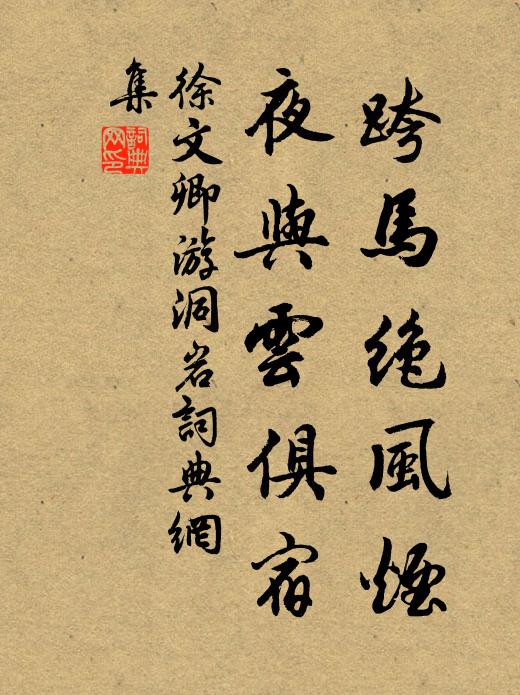 跨馬絶風煙
夜與雲俱宿
徐文卿游洞岩詞典網
集
詞典网印